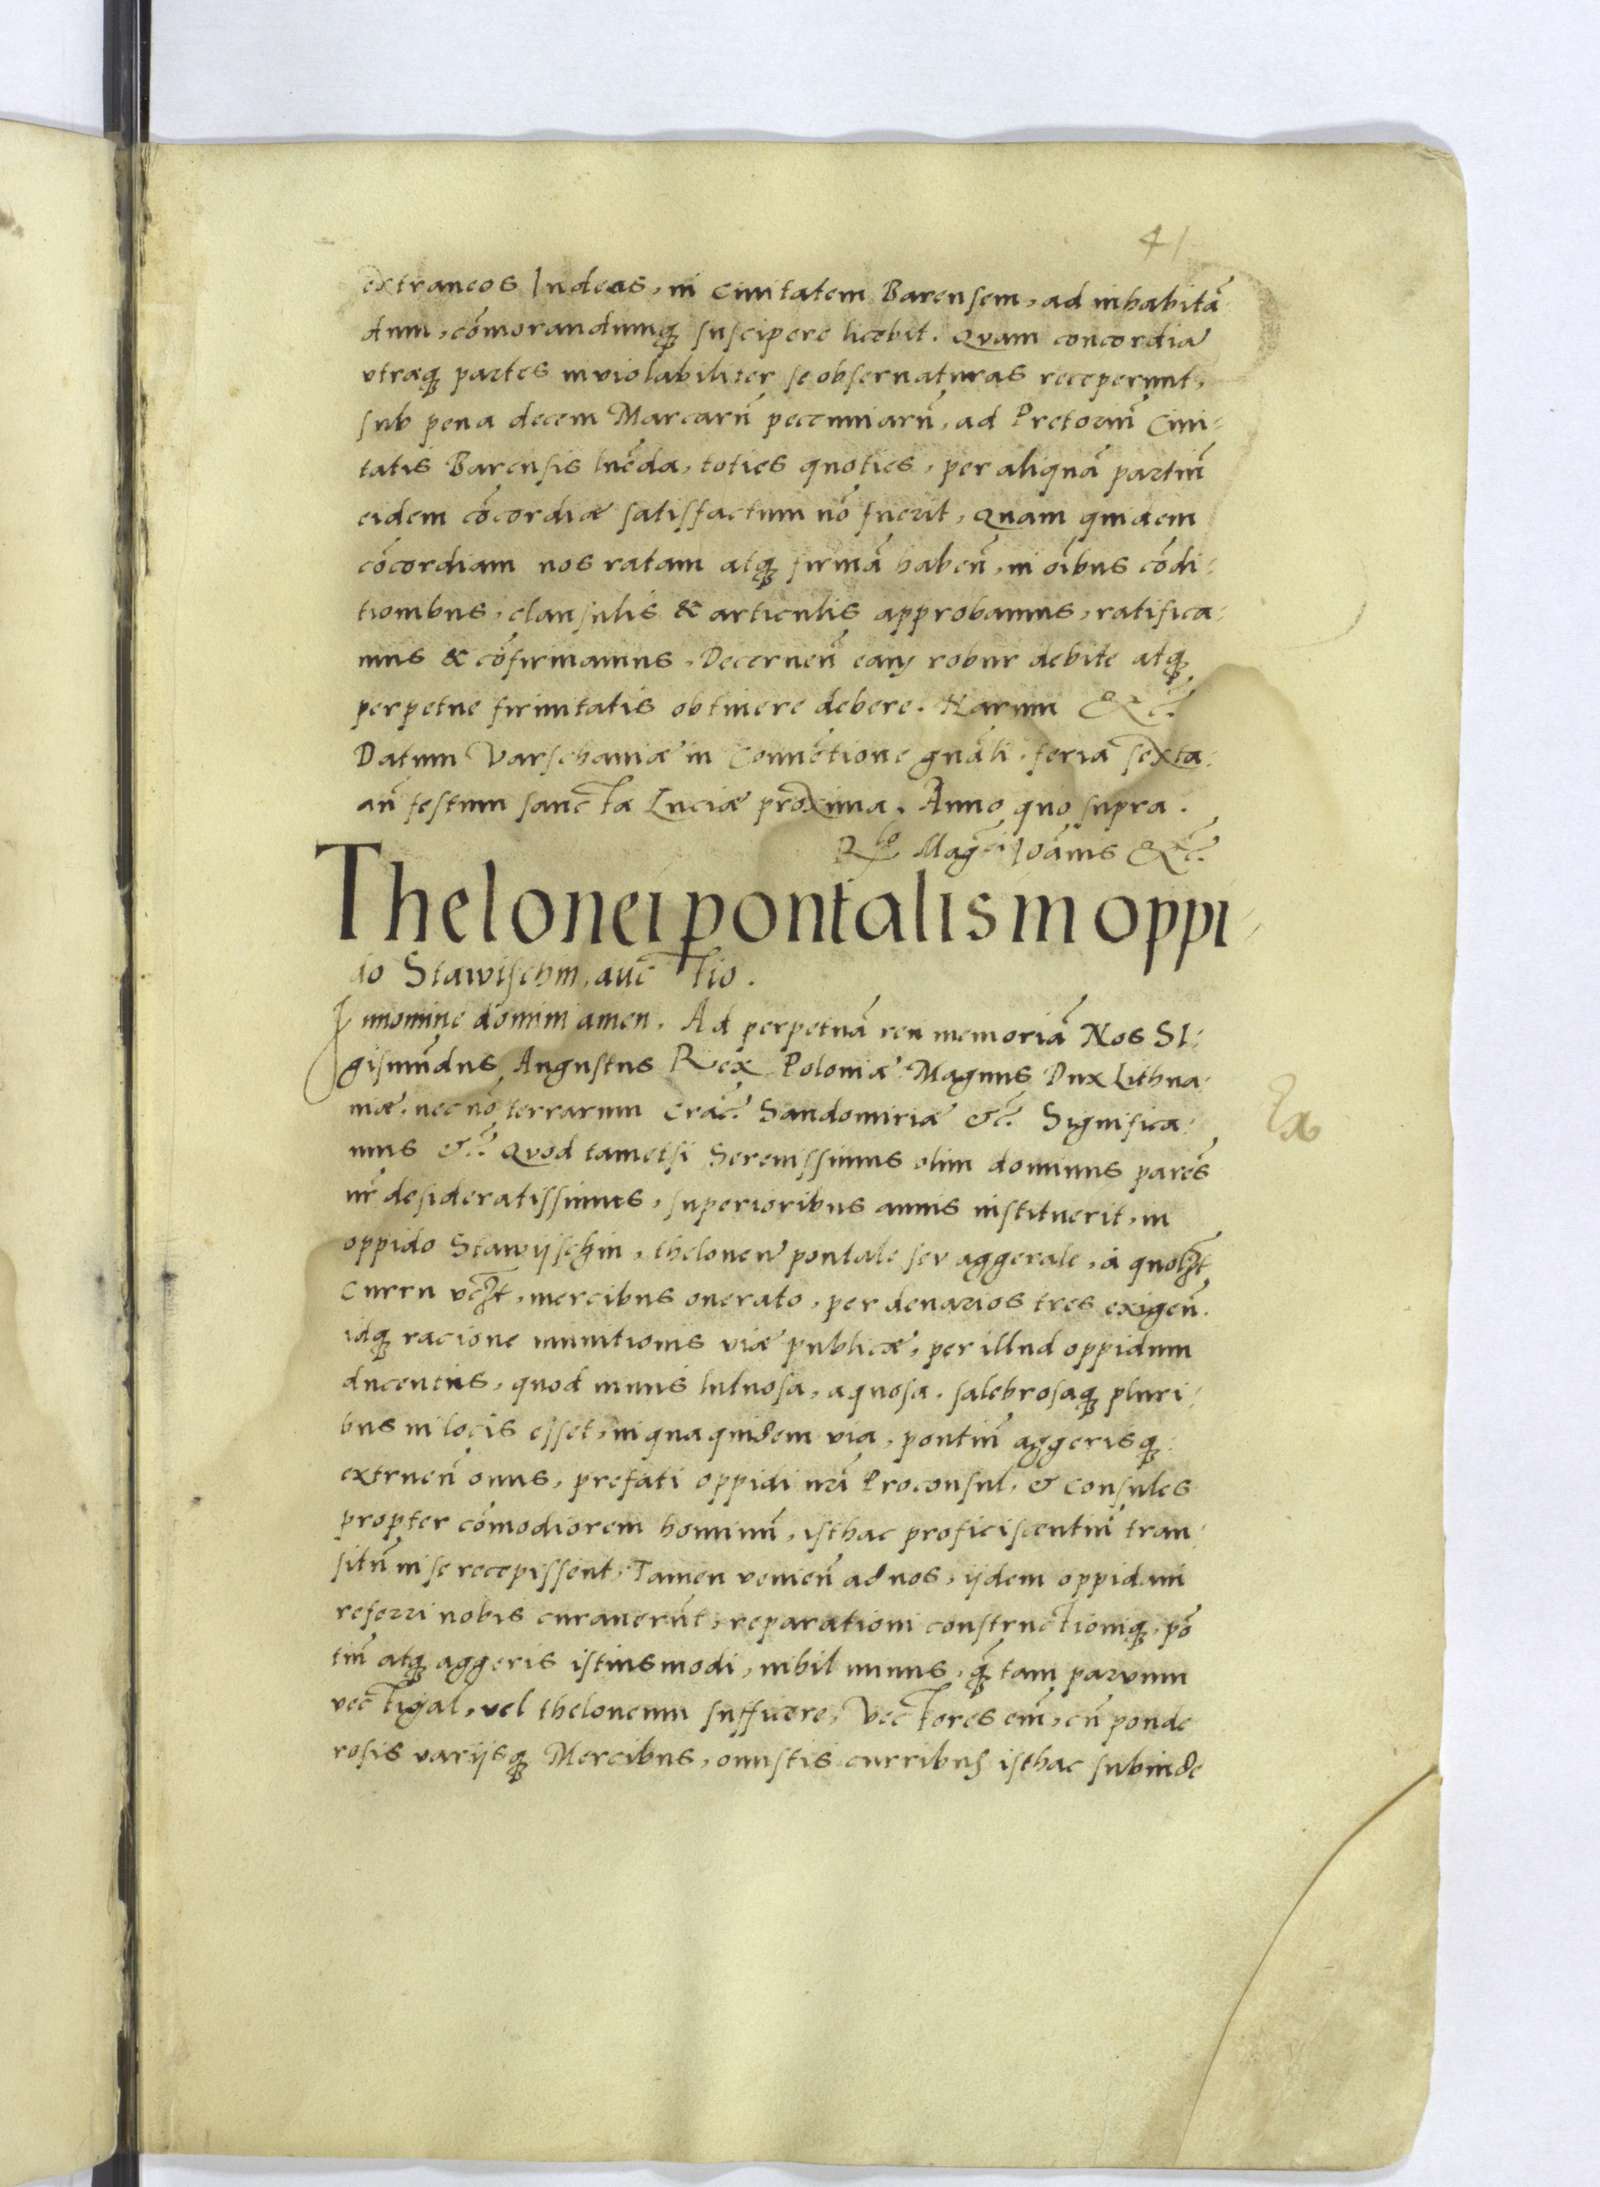 41
extraneos Iudeos, in Civitatem Barensem, ad inhabitā
dum, cōmorandumq̃ suscipere licebit. Quam concordiā
utraeq̃ partes inviolabiliter se observaturas receperunt,
sub pena decem Marcarū pecuniarū, ad Pretoriū Civi-
tatis Barensis luēda, toties quoties, per aliquā partiū
eidem cōcordiæ satisfactum nō fuerit, Quam quidem
cōcordiam nos ratam atq̃ firmā habeñ, in oībus cōdi-
tionibus, clausulis & articulis approbamus, ratifica-
mus & cōfirmamus, Decerneñ eam robur debite atq̃
perpetue firmitatis obtinere debere. Harum &c̃.
Datum Varschaviæ in Conuētione gnāli. feria sexta
añ festum sanctæ Luciæ proxima. Anno quo supra.
Rlō Magcī Ioānis &c̃.
Thelonei pontalis in oppi-
do Stawischin, auctio.
In nomine domini amen. Ad perpetuā rei memoriā Nos SI-
gismūdus Augustus Rex Poloniæ Magnus Dux Lithua-
niæ. nec nō terrarum Crac̃. Sandomiriæ &c̃. Significa-
mus &c̃. Quod tametsi Serenissimus olim dominus pares̃
nr̃ desideratissimus, superioribus annis instituerit, in
oppido Stawyschin, theloneū pontale seu aggerale, à quolꝫt
curru vecꝫt, mercibus onerato, per denarios tres exigeñ.
idq̃ racione munitionis viæ publicæ, per illud oppidum
ducentis, quod nimis lutuosa, aquosa. salebrosaq̃ pluri-
bus in locis esset, in qua quidem via, pontiū aggerisq̃
extrueñ onus, prefati oppidi nr̃i Proconsul, & consules
propter cōmodiorem hominū, isthac proficiscentiū tran-
sitū in se recepissent, Tamen venieñ ad nos, ijdem oppidani
referri nobis curaverūt, reparationi constructioniq̃ pō
tiū atq̃ aggeris istiusmodi, nihil minus, q̃ tam parvum
vectigal, vel theloneum sufficere, Vectores em̄, cū ponde
rosis varijsq̃ Mercibus, onustis curribus isthac subinde